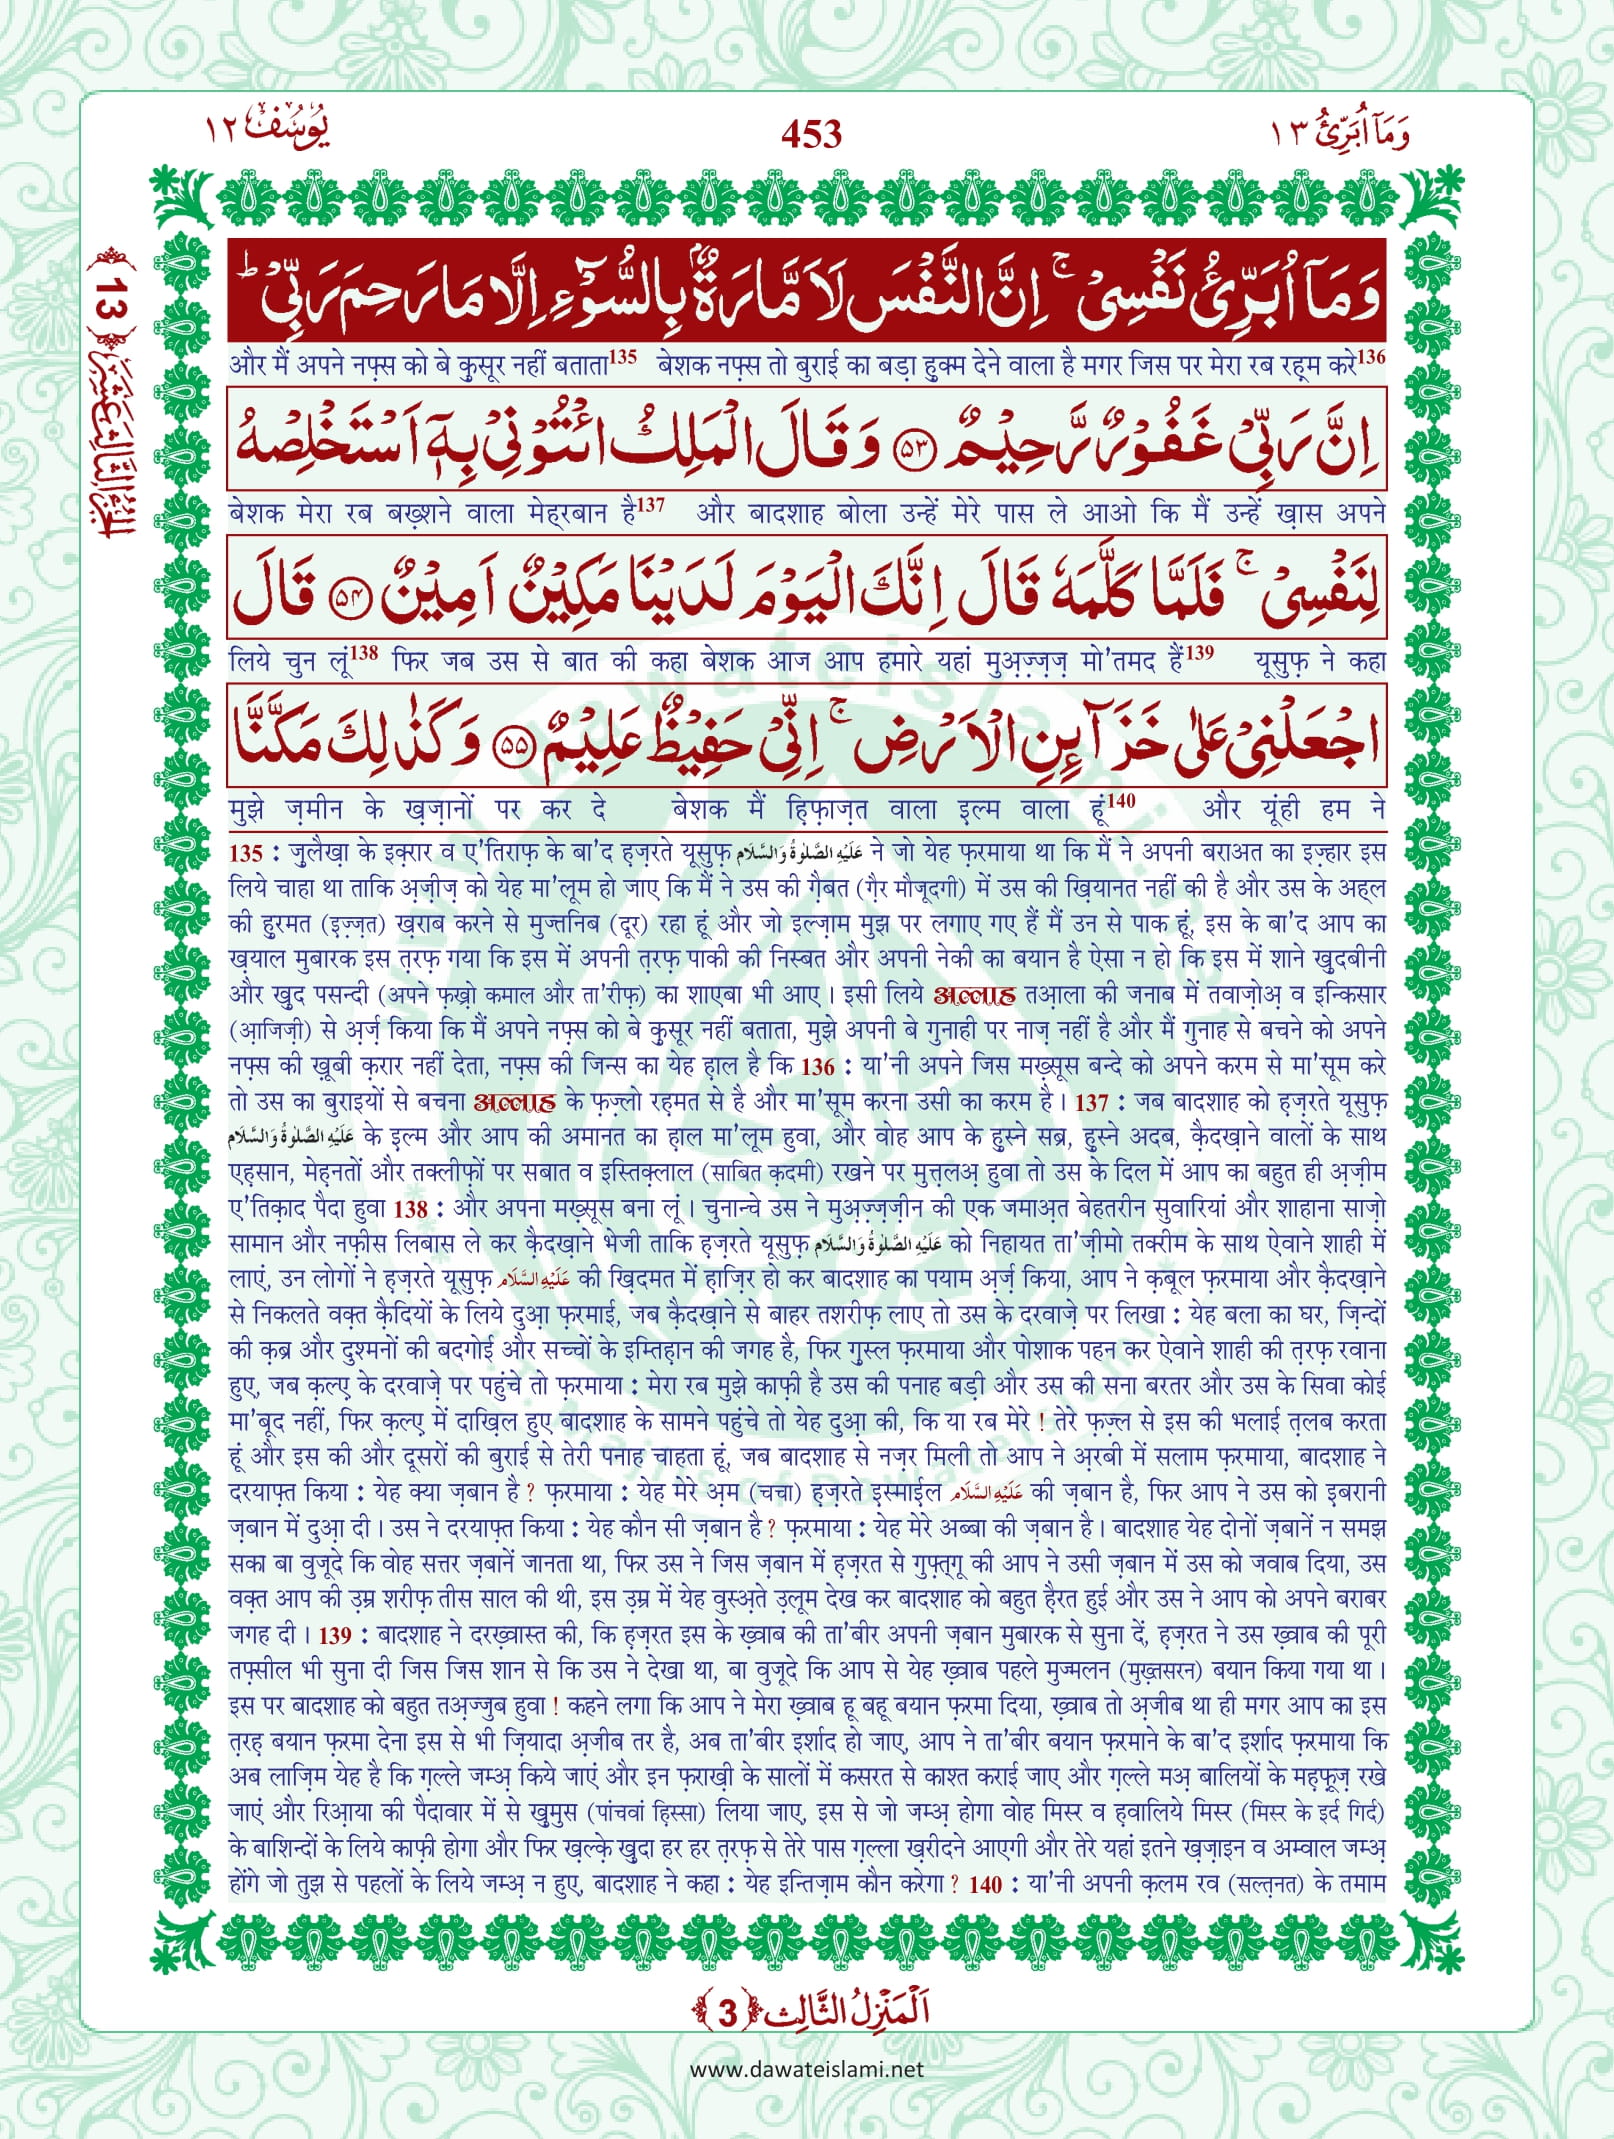 وَمَآ اُبَرِّئُ ١٣
453
يُوْسُف ١٢
اَلْجُزْءُ الثَّالِثُ عَشَرَ ﴿13﴾
وَمَاۤ اُبَرِّئُ نَفْسِیْ ۚ اِنَّ النَّفْسَ لَاَمَّارَةٌۢ بِالسُّوْٓءِ اِلَّا مَا رَحِمَ رَبِّیْ ؕ
और मैं अपने नफ़्स को बे कुसूर नहीं बताता135 बेशक नफ़्स तो बुराई का बड़ा हुक्म देने वाला है मगर जिस पर मेरा रब रह़्म करे136
اِنَّ رَبِّیْ غَفُوْرٌ رَّحِیْمٌ ﴿۵۳﴾ وَقَالَ الْمَلِكُ ائْتُوْنِیْ بِهٖۤ اَسْتَخْلِصْهُ
बेशक मेरा रब बख़्शने वाला मेह्‌रबान है137 और बादशाह बोला उन्हें मेरे पास ले आओ कि मैं उन्हें ख़ास अपने
لِنَفْسِیْ ۚ فَلَمَّا كَلَّمَهٗ قَالَ اِنَّكَ الْیَوْمَ لَدَیْنَا مَكِیْنٌ اَمِیْنٌ ﴿۵۴﴾ قَالَ
लिये चुन लूं138 फिर जब उस से बात की कहा बेशक आज आप हमारे यहां मुअ़ज़्ज़ज़ मो'तमद हैं139 यूसुफ़ ने कहा
اجْعَلْنِیْ عَلٰی خَزَآىِٕنِ الْاَرْضِ ۚ اِنِّیْ حَفِیْظٌ عَلِیْمٌ ﴿۵۵﴾ وَكَذٰلِكَ مَكَّنَّا
मुझे ज़मीन के ख़ज़ानों पर कर दे बेशक मैं ह़िफ़ाज़त वाला इ़ल्म वाला हूं140 और यूंही हम ने
135 : ज़ुलैख़ा के इक़्रार व ए'तिराफ़ के बा'द ह़ज़रते यूसुफ़ عَلَيْهِ الصَّلٰوةُ وَالسَّلَام ने जो येह फ़रमाया था कि मैं ने अपनी बराअत का इज़्हार इस
लिये चाहा था ताकि अ़ज़ीज़ को येह मा'लूम हो जाए कि मैं ने उस की ग़ैबत (ग़ैर मौजूदगी) में उस की ख़ियानत नहीं की है और उस के अह्‌ल
की हुरमत (इ़ज़्ज़त) ख़राब करने से मुज्तनिब (दूर) रहा हूं और जो इल्ज़ाम मुझ पर लगाए गए हैं मैं उन से पाक हूं, इस के बा'द आप का
ख़याल मुबारक इस त़रफ़ गया कि इस में अपनी त़रफ़ पाकी की निस्बत और अपनी नेकी का बयान है ऐसा न हो कि इस में शाने ख़ुदबीनी
और ख़ुद पसन्दी (अपने फ़ख़्रो कमाल और ता'रीफ़) का शाएबा भी आए । इसी लिये अल्लाह तआ़ला की जनाब में तवाज़ोअ़ व इन्किसार
(आ़जिज़ी) से अ़र्ज़ किया कि मैं अपने नफ़्स को बे क़ुसूर नहीं बताता, मुझे अपनी बे गुनाही पर नाज़ नहीं है और मैं गुनाह से बचने को अपने
नफ़्स की ख़ूबी क़रार नहीं देता, नफ़्स की जिन्स का येह ह़ाल है कि 136 : या'नी अपने जिस मख़्सूस बन्दे को अपने करम से मा'सूम करे
तो उस का बुराइयों से बचना अल्लाह के फ़ज़्लो रह़मत से है और मा'सूम करना उसी का करम है । 137 : जब बादशाह को ह़ज़रते यूसुफ़
عَلَيْهِ الصَّلٰوةُ وَالسَّلَام के इ़ल्म और आप की अमानत का ह़ाल मा'लूम हुवा, और वोह आप के हुस्ने सब्र, हुस्ने अदब, क़ैदख़ाने वालों के साथ
एह़सान, मेह़नतों और तक्लीफ़ों पर सबात व इस्तिक़्लाल (साबित क़दमी) रखने पर मुत्तलअ़ हुवा तो उस के दिल में आप का बहुत ही अ़ज़ीम
ए'तिक़ाद पैदा हुवा 138 : और अपना मख़्सूस बना लूं । चुनान्चे उस ने मुअ़ज़्ज़ज़ीन की एक जमाअ़त बेहतरीन सुवारियां और शाहाना साज़ो
सामान और नफ़ीस लिबास ले कर क़ैदख़ाने भेजी ताकि ह़ज़रते यूसुफ़ عَلَيْهِ الصَّلٰوةُ وَالسَّلَام को निहायत ता'ज़ीमो तक्रीम के साथ ऐवाने शाही में
लाएं, उन लोगों ने ह़ज़रते यूसुफ़ عَلَيْهِ السَّلَام की ख़िदमत में ह़ाज़िर हो कर बादशाह का पयाम अ़र्ज़ किया, आप ने क़बूल फ़रमाया और क़ैदख़ाने
से निकलते वक़्त क़ैदियों के लिये दुआ़ फ़रमाई, जब क़ैदख़ाने से बाहर तशरीफ़ लाए तो उस के दरवाज़े पर लिखा : येह बला का घर, ज़िन्दों
की क़ब्र और दुश्मनों की बदगोई और सच्चों के इम्तिह़ान की जगह है, फिर ग़ुस्ल फ़रमाया और पोशाक पहन कर ऐवाने शाही की त़रफ़ रवाना
हुए, जब क़ल्ए के दरवाज़े पर पहुंचे तो फ़रमाया : मेरा रब मुझे काफ़ी है उस की पनाह बड़ी और उस की सना बरतर और उस के सिवा कोई
मा'बूद नहीं, फिर क़ल्ए में दाख़िल हुए बादशाह के सामने पहुंचे तो येह दुआ़ की, कि या रब मेरे ! तेरे फ़ज़्ल से इस की भलाई त़लब करता
हूं और इस की और दूसरों की बुराई से तेरी पनाह चाहता हूं, जब बादशाह से नज़र मिली तो आप ने अ़रबी में सलाम फ़रमाया, बादशाह ने
दरयाफ़्त किया : येह क्या ज़बान है ? फ़रमाया : येह मेरे अ़म (चचा) ह़ज़रते इस्माईल عَلَيْهِ السَّلَام की ज़बान है, फिर आप ने उस को इबरानी
ज़बान में दुआ़ दी । उस ने दरयाफ़्त किया : येह कौन सी ज़बान है ? फ़रमाया : येह मेरे अब्बा की ज़बान है । बादशाह येह दोनों ज़बानें न समझ
सका बा वुजूदे कि वोह सत्तर ज़बानें जानता था, फिर उस ने जिस ज़बान में ह़ज़रत से गुफ़्त्गू की आप ने उसी ज़बान में उस को जवाब दिया, उस
वक़्त आप की उ़म्र शरीफ़ तीस साल की थी, इस उ़म्र में येह वुस्अ़ते उ़लूम देख कर बादशाह को बहुत ह़ैरत हुई और उस ने आप को अपने बराबर
जगह दी । 139 : बादशाह ने दरख़्वास्त की, कि ह़ज़रत इस के ख़्वाब की ता'बीर अपनी ज़बान मुबारक से सुना दें, ह़ज़रत ने उस ख़्वाब की पूरी
तफ़्सील भी सुना दी जिस जिस शान से कि उस ने देखा था, बा वुजूदे कि आप से येह ख़्वाब पहले मुज्मलन (मुख़्तसरन) बयान किया गया था ।
इस पर बादशाह को बहुत तअ़ज्जुब हुवा ! कहने लगा कि आप ने मेरा ख़्वाब हू बहू बयान फ़रमा दिया, ख़्वाब तो अ़जीब था ही मगर आप का इस
त़रह़ बयान फ़रमा देना इस से भी ज़ियादा अ़जीब तर है, अब ता'बीर इर्शाद हो जाए, आप ने ता'बीर बयान फ़रमाने के बा'द इर्शाद फ़रमाया कि
अब लाज़िम येह है कि ग़ल्ले जम्अ़ किये जाएं और इन फ़राख़ी के सालों में कसरत से काश्त कराई जाए और ग़ल्ले मअ़ बालियों के मह़फ़ूज़ रखे
जाएं और रिआ़या की पैदावार में से ख़ुमुस (पांचवां ह़िस्सा) लिया जाए, इस से जो जम्अ़ होगा वोह मिस्र व ह़वालिये मिस्र (मिस्र के इर्द गिर्द)
के बाशिन्दों के लिये काफ़ी होगा और फिर ख़ल्के ख़ुदा हर हर त़रफ़ से तेरे पास ग़ल्ला ख़रीदने आएगी और तेरे यहां इतने ख़ज़ाइन व अम्वाल जम्अ़
होंगे जो तुझ से पहलों के लिये जम्अ़ न हुए, बादशाह ने कहा : येह इन्तिज़ाम कौन करेगा ? 140 : या'नी अपनी क़लम रव (सल्त़नत) के तमाम
اَلْمَنْزِلُ الثَّالِث ﴿3﴾
www.dawateislami.net